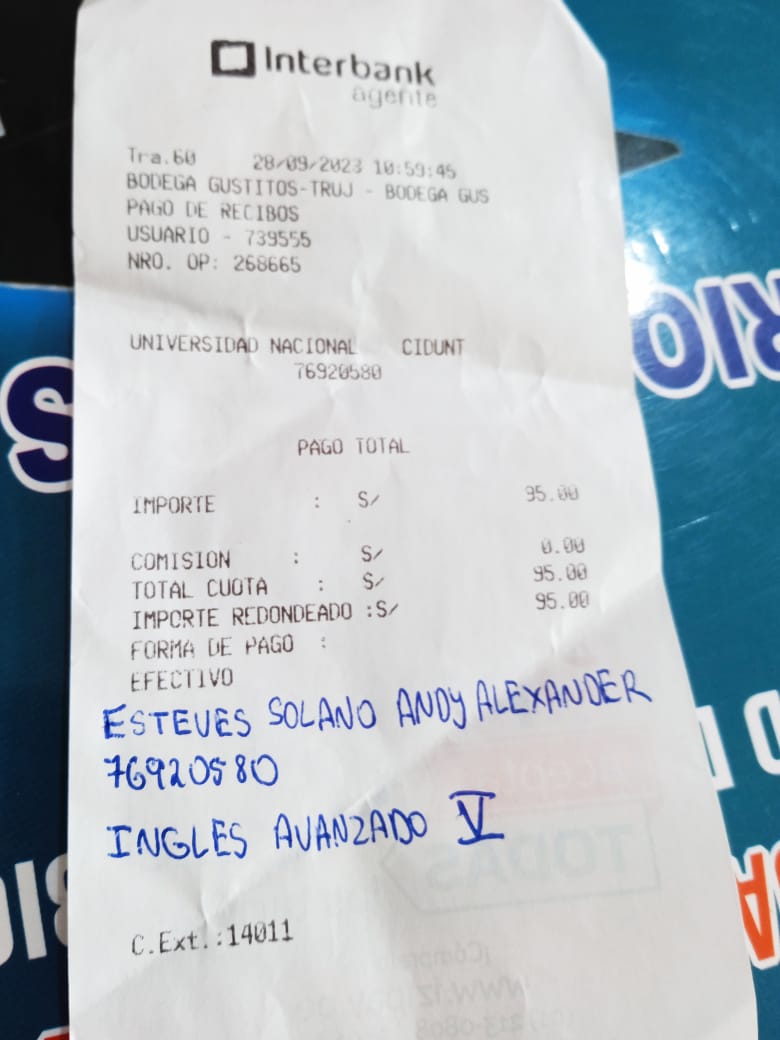 Interbank
agente
Tra.60 28/09/2023 10:59:45
BODEGA GUSTITOS-TRUJ - BODEGA GUS
PAGO DE RECIBOS
USUARIO - 739555
NRO. OP: 268665
UNIVERSIDAD NACIONAL CIDUNT
76920580
PAGO TOTAL
IMPORTE : S/ 95.00
COMISION : S/ 0.00
TOTAL CUOTA : S/ 95.00
IMPORTE REDONDEADO :S/ 95.00
FORMA DE PAGO :
EFECTIVO
ESTEVES SOLANO ANDY ALEXANDER
76920580
INGLES AVANZADO V
C.Ext.:14011
TODAS